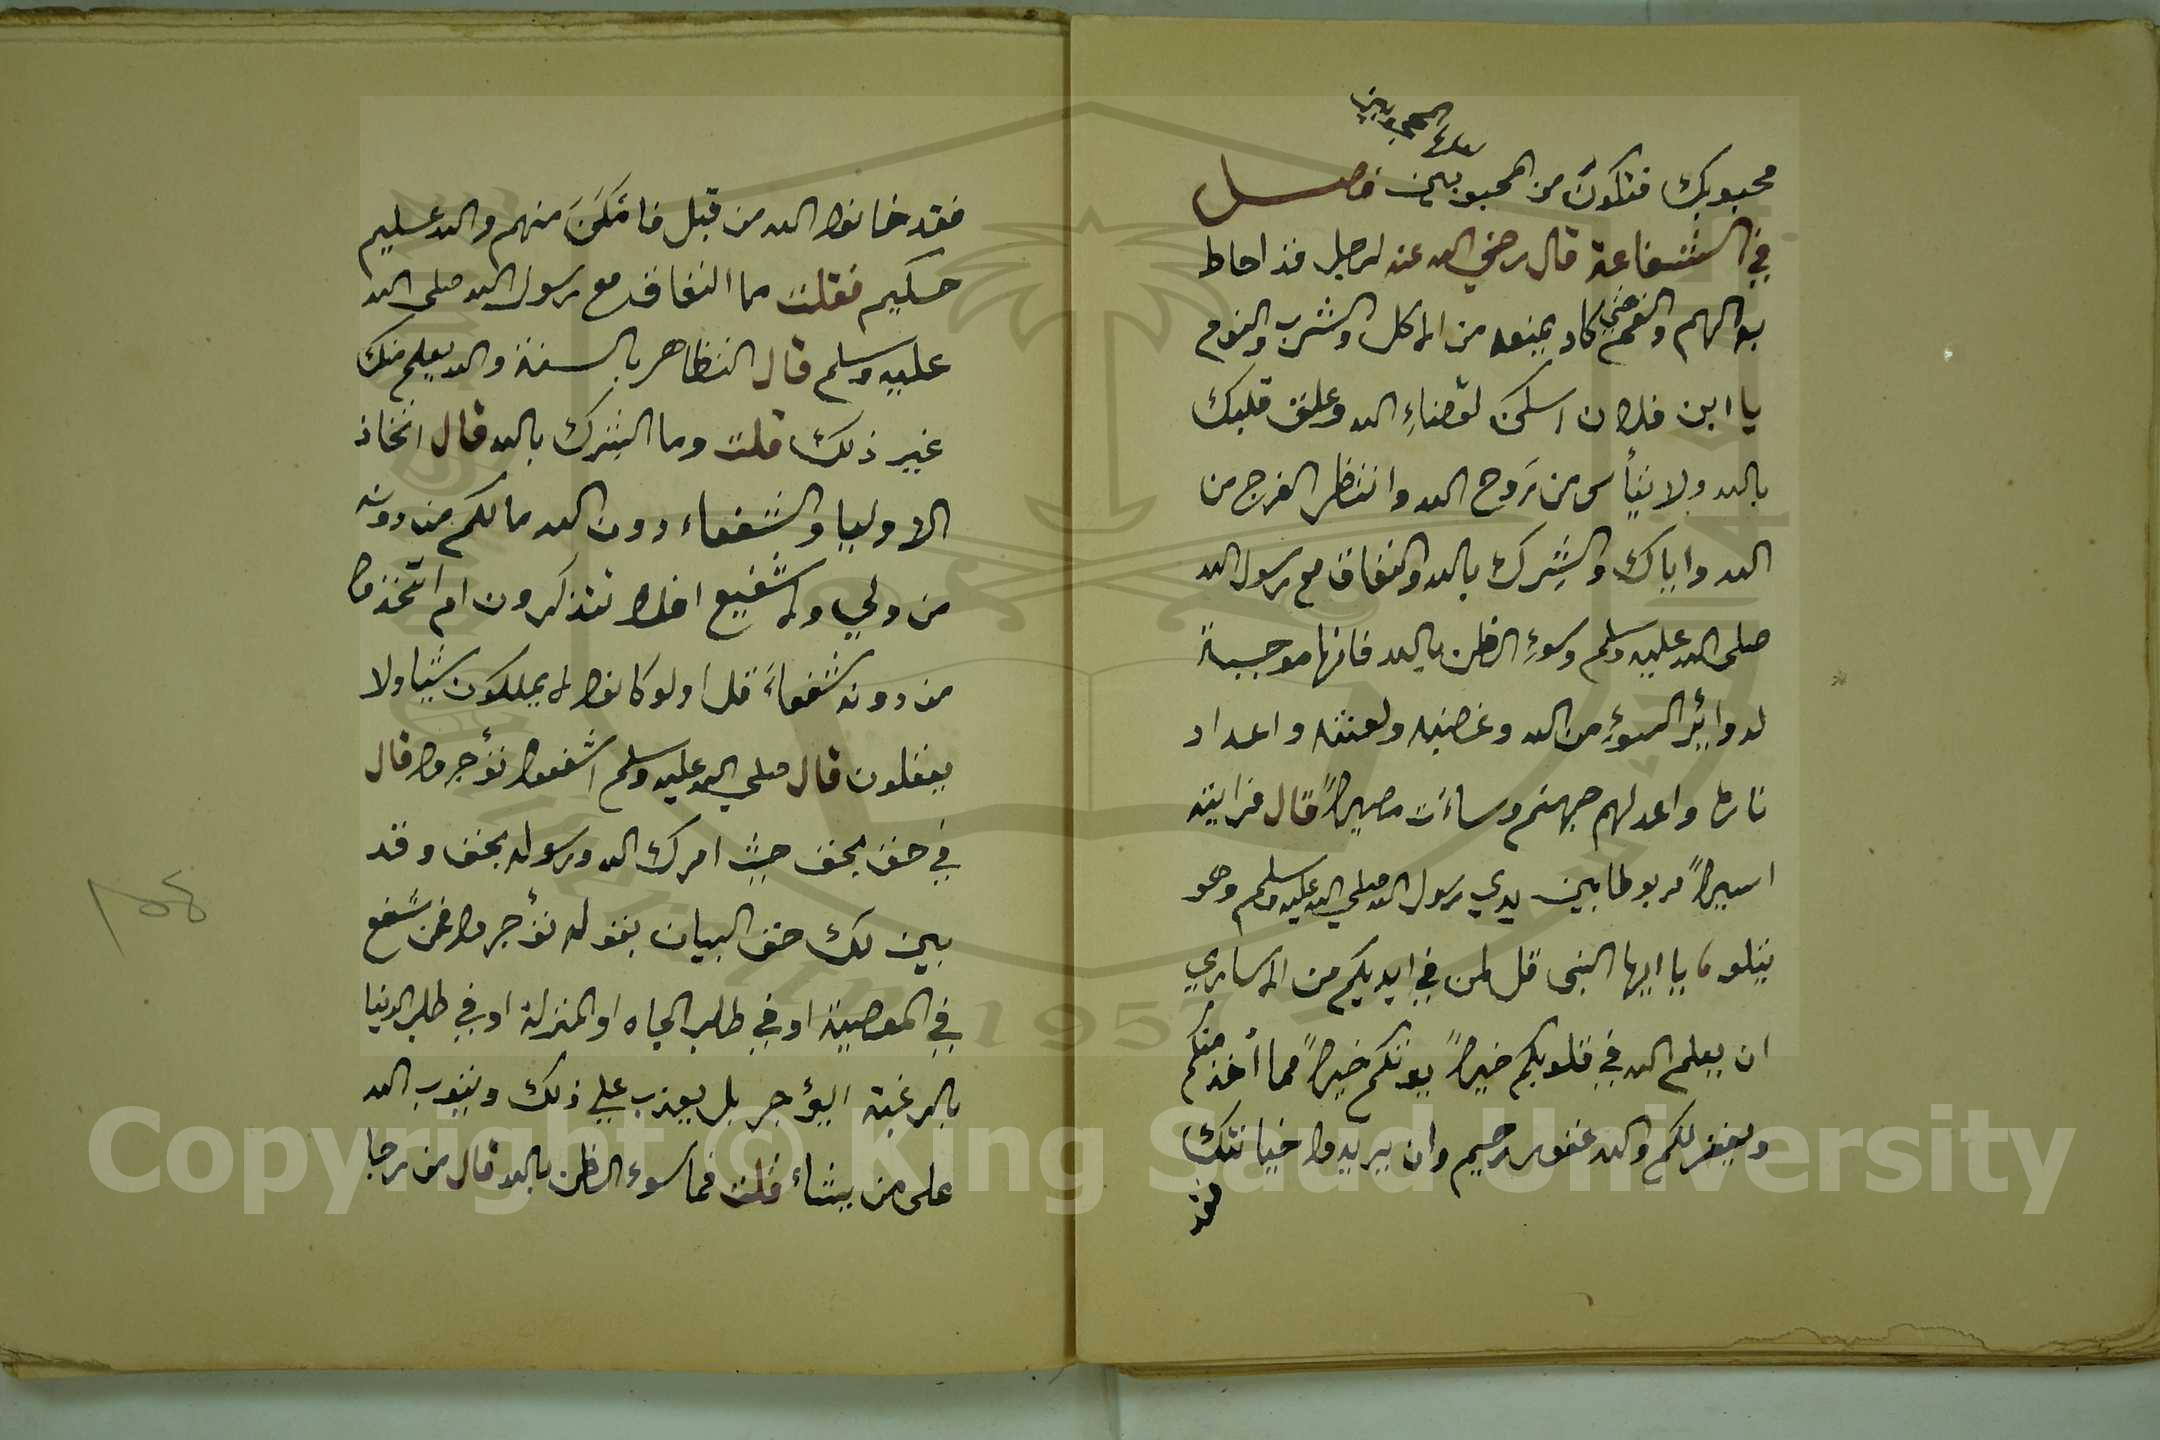 محبوبك فتكون من المحبوبين فصل
في الشفاعة قال رضي الله عنه لرجل قد احاط
به الهم والغم حتى كاد يمنعه من الاكل والشرب والنوم
يا ابن فلان اسكن لقضاءِ الله وعلق قلبك
بالله ولا تيأس من رَوح الله وانتظر الفرج من
الله واياك والشِرك بالله والنفاق مع رسول الله
صلى الله عليه وسلم وسوءِ الظن بالله فانها موجبة
لدوائر السوءِ من الله وغضبه ولعنته واعداد
ناره واعد لهم جهنم وساءت مصيراً قال فرايته
اسيراً مربوطا بين يدي رسول الله صلي الله عليه وسلم وهو
يتلو يا ايها النبى قل لمن في ايديكم من الاساري
ان يعلم الله في قلوبكم خيراً يوتكم خيراً مما أُخذ منكم
ويغفر لكم والله غفور رحيم وان يريدوا خيانتك
فقد
فقد خانوا الله من قبل فامَكَنَ منهم والله عليم
حكيم فقلت ما النفاق مع رسول الله صلى الله
عليه وسلم قال التظاهر بالسنة والله يعلم منك
غير ذلك قلت وما الشرك بالله قال اتخاذ
الاوليا والشفعاء دون الله مالكم من دونه
من ولي ولا شفيع افلا تتذكرون ام اتخذوا
من دونه شفعاءَ قل اولو كانوا لا يملكون شيئا ولا
يعقلون قال صلي الله عليه وسلم اشفعوا تؤجروا قال
في حق بحق حيث امرك الله ورسوله بحق وقد
بين لك حق البيان بقوله تؤجروا فمن شفع
في المعصية او في طلب الجاه او المنزلة او في طلب الدنيا
بالرغبة ايؤجر بل يعذب علي ذلك ويتوب الله
على من يشاء قلت فما سوء الظن بالله قال من رجا